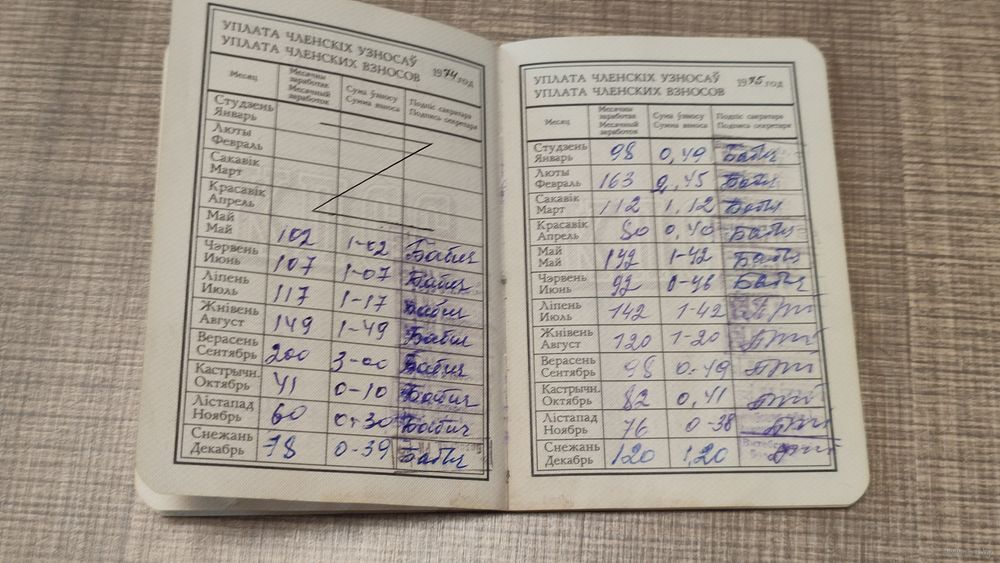 УПЛАТА ЧЛЕНСКІХ УЗНОСАЎ
УПЛАТА ЧЛЕНСКИХ ВЗНОСОВ 1974 год
Месяц Месячны заработак Месячный заработок Сума ўзносу Сумма взноса Подпіс сакратара Подпись секретаря
Студзень
Январь
Люты
Февраль
Сакавік
Март
Красавік
Апрель
Май
Май 102 1-02 Бабич
Чэрвень
Июнь 107 1-07 Бабич
Ліпень
Июль 117 1-17 Бабич
Жнівень
Август 149 1-49 Бабич
Верасень
Сентябрь 200 3-00 Бабич
Кастрычн.
Октябрь 41 0-10 Бабич
Лістапад
Ноябрь 60 0-30 Бабич
Снежань
Декабрь 78 0-39 Бабич
УПЛАТА ЧЛЕНСКІХ УЗНОСАЎ
УПЛАТА ЧЛЕНСКИХ ВЗНОСОВ 1975 год
Месяц Месячны заработак Месячный заработок Сума ўзносу Сумма взноса Подпіс сакратара Подпись секретаря
Студзень
Январь 98 0,49 Бабич
Люты
Февраль 163 Бабич
Сакавік
Март 112 1,12 Бабич
Красавік
Апрель 80 0,40 Бабич
Май
Май 142 1-42 Бабич
Чэрвень
Июнь 92 0-46 Бабич
Ліпень
Июль 142 1-42
Жнівень
Август 120 1-20
Верасень
Сентябрь 98 0-49
Кастрычн.
Октябрь 82 0,41
Лістапад
Ноябрь 76 0-38
Снежань
Декабрь 120 1,20